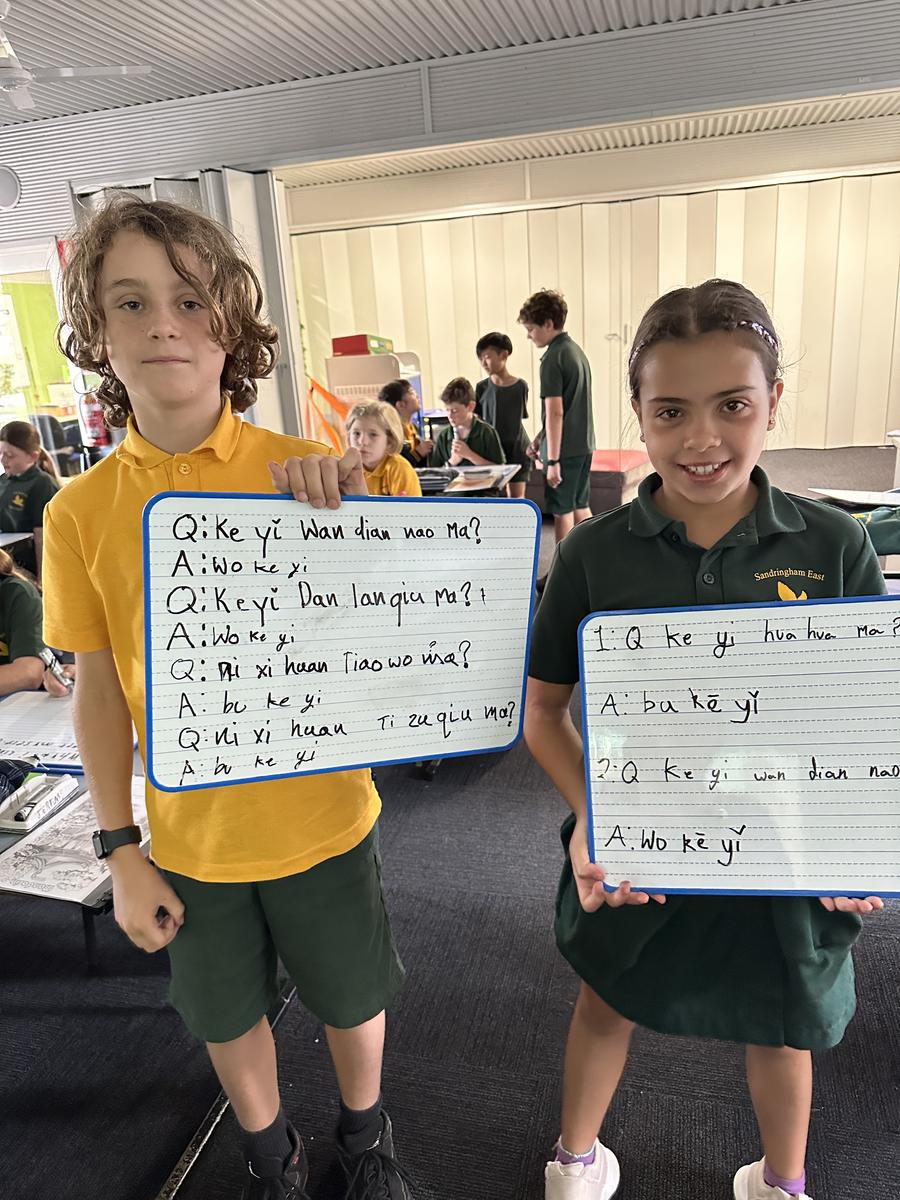 Q: Ke yǐ Wan dian nao Ma?
A: Wo ke yi
Q: Ke yi Dan lanqiu Ma?
A: Wo ke yi
Q: Ni xi huan Tiao wo ma?
A: bu ke yi
Q: ni xi huan Ti zuqiu ma?
A: bu ke yi
Sandringham East
1: Q ke yi hua hua ma?
A: bu kē yǐ
2: Q ke yi wan dian nao
A. Wo kē yǐ